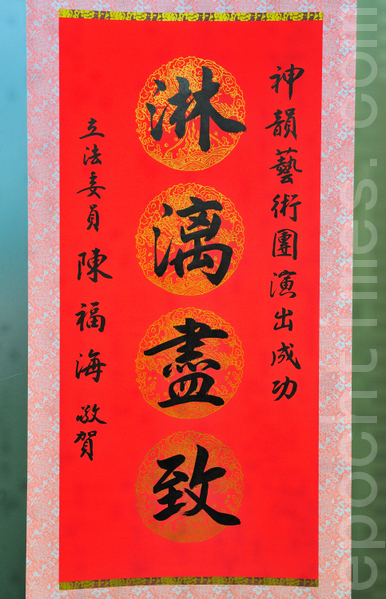 神韻藝術團演出成功
淋漓盡致
立法委員 陳福海 敬賀
epochtimes.com